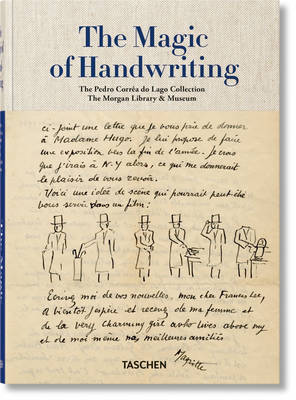 The Magic
of Handwriting
The Pedro Corrêa do Lago Collection
The Morgan Library & Museum
ci-joint une lettre que je vous prie de donner
à Madame Hugo. Je lui propose de faire
une exposition vers la fin de l'année. Je crois
que j'irais à N-Y alors, ce qui me donnerait
le plaisir de vous revoir.
Voici une idée de scène qui pourrait peut-être
vous servir dans un film:
Ecrivez moi de vos nouvelles, mon cher Francis Lee,
à bientôt j'espère et recevez de ma femme et
de la very charming girl who lives above my
et de moi même nos meilleures amitiés
Magritte
TASCHEN